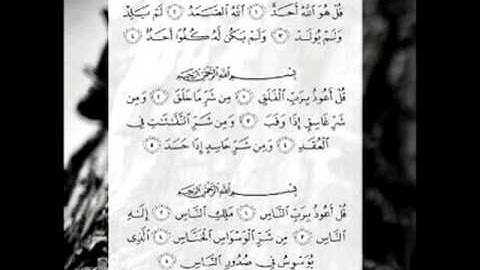 قُلْ هُوَ اللَّهُ أَحَدٌ ١ اللَّهُ الصَّمَدُ ٢ لَمْ يَلِدْ
وَلَمْ يُولَدْ ٣ وَلَمْ يَكُن لَّهُ كُفُوًا أَحَدٌ ٤
بِسْمِ اللَّهِ الرَّحْمَٰنِ الرَّحِيمِ
قُلْ أَعُوذُ بِرَبِّ الْفَلَقِ ١ مِن شَرِّ مَا خَلَقَ ٢ وَمِن
شَرِّ غَاسِقٍ إِذَا وَقَبَ ٣ وَمِن شَرِّ النَّفَّاثَاتِ فِي
الْعُقَدِ ٤ وَمِن شَرِّ حَاسِدٍ إِذَا حَسَدَ ٥
بِسْمِ اللَّهِ الرَّحْمَٰنِ الرَّحِيمِ
قُلْ أَعُوذُ بِرَبِّ النَّاسِ ١ مَلِكِ النَّاسِ ٢ إِلَٰهِ
النَّاسِ ٣ مِن شَرِّ الْوَسْوَاسِ الْخَنَّاسِ ٤ الَّذِي
يُوَسْوِسُ فِي صُدُورِ النَّاسِ ٥